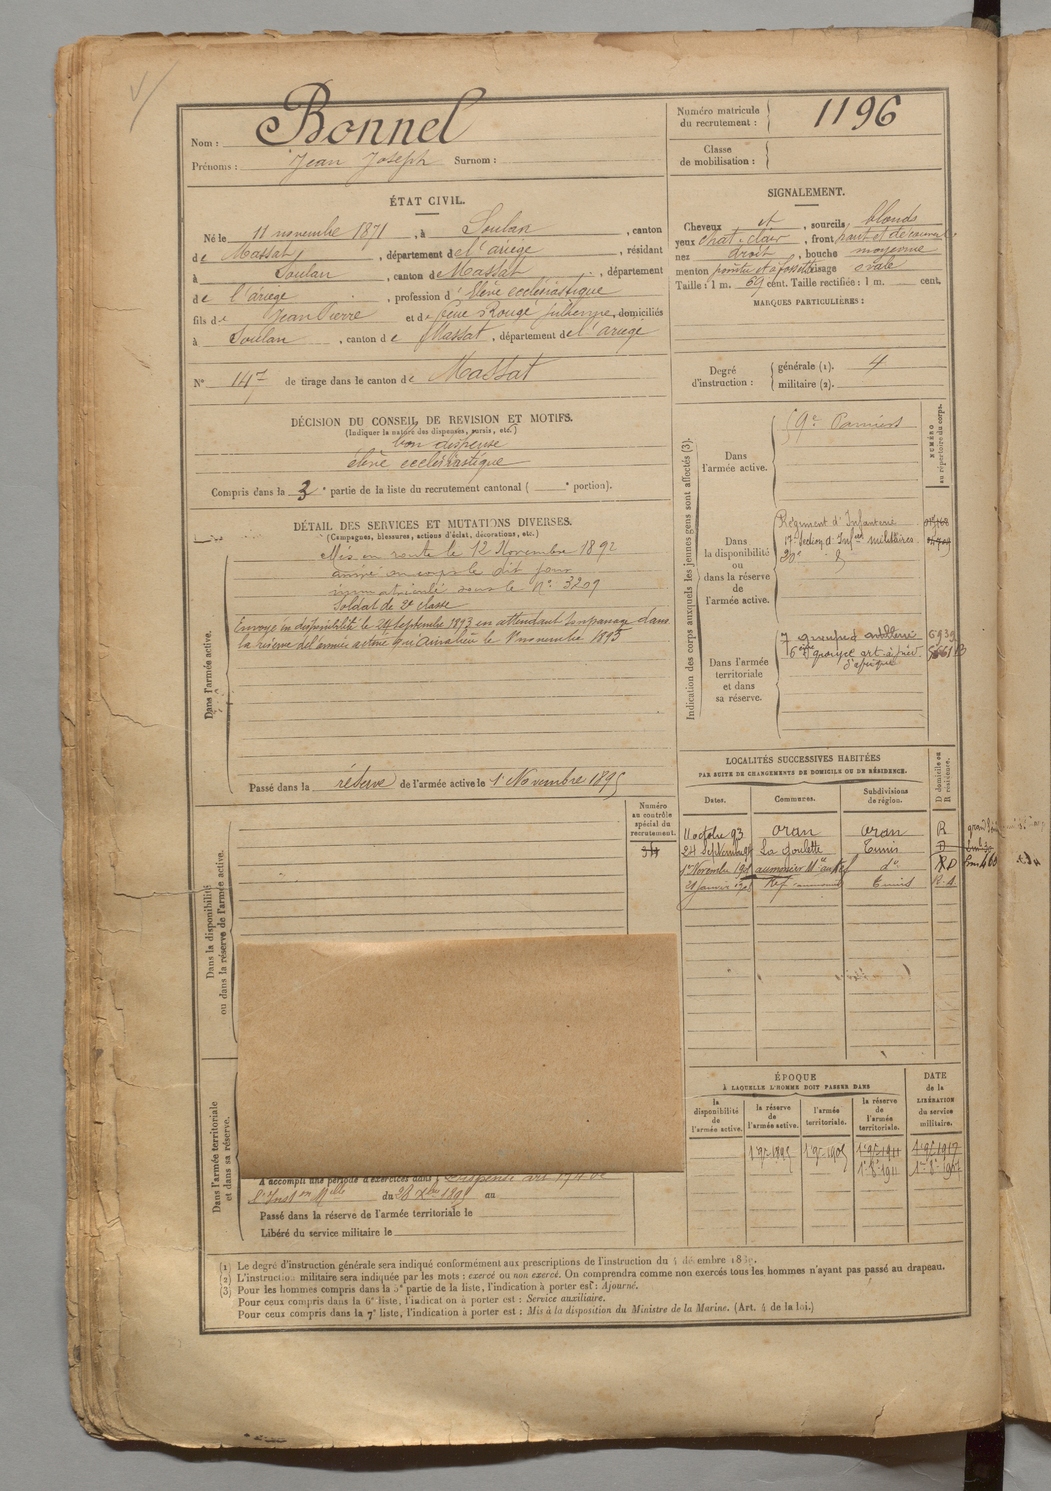 Nom : Bonnel
Prénoms : Jean Joseph Surnom :
Numéro matricule du recrutement : 1196
Classe de mobilisation :
ÉTAT CIVIL.
Né le 11 novembre 1871, à Soulan, canton
de Massat, département de l'ariège, résidant
à Soulan, canton de Massat, département
de l'ariège, profession d'élève ecclésiastique
fils de Jean Pierre et de feue Rouge Julienne, domiciliés
à Soulan, canton de Massat, département de l'ariège
N° 147 de tirage dans le canton de Massat
SIGNALEMENT.
Cheveux et, sourcils blonds
yeux chat. clair, front haut et découvert
nez droit, bouche moyenne
menton pointu et à fossette visage ovale
Taille : 1 m. 69 cent. Taille rectifiée : 1 m. cent.
MARQUES PARTICULIÈRES :
Degré d'instruction :
générale (1). 4
militaire (2).
DÉCISION DU CONSEIL DE REVISION ET MOTIFS.
(Indiquer la nature des dispenses, sursis, etc.)
bon dispense
élève ecclésiastique
Compris dans la 3e partie de la liste du recrutement cantonal ( e portion).
DÉTAIL DES SERVICES ET MUTATIONS DIVERSES.
(Campagnes, blessures, actions d'éclat, décorations, etc.)
Dans l'armée active.
Mis en route le 12 Novembre 1892
arrivé au corps le dit jour
immatriculé sous le N° 3209
Soldat de 2e classe
Envoyé en disponibilité le 24 septembre 1893 en attendant son passage dans
la réserve de l'armée active qui aura lieu le 1er novembre 1895
Passé dans la réserve de l'armée active le 1er Novembre 1895
Indication des corps auxquels les jeunes gens sont affectés (3).
NUMÉRO au répertoire du corps.
Dans l'armée active.
59e Pamiers
Dans la disponibilité ou dans la réserve de l'armée active.
Régiment d'Infanterie
17e Section d'Infers militaires
20e
Dans l'armée territoriale et dans sa réserve.
7 groupe artillerie 6939
6ème groupe art. à pied
d'afrique
LOCALITÉS SUCCESSIVES HABITÉES
PAR SUITE DE CHANGEMENTS DE DOMICILE OU DE RÉSIDENCE.
Dates.
Communes.
Subdivisions de région.
D domicile ou R résidence.
11 octobre 93 oran oran R
24 Septembre La Goulette Tunis D
1er Novembre aumonier do
21 janvier Tunis
Numéro au contrôle spécial du recrutement.
Dans la disponibilité ou dans la réserve de l'armée active.
Dans l'armée territoriale et dans sa réserve.
A accompli une période d'exercices dans Dispensé art
du 28 Xbre au
Passé dans la réserve de l'armée territoriale le
Libéré du service militaire le
ÉPOQUE
À LAQUELLE L'HOMME DOIT PASSER DANS
la disponibilité de l'armée active.
la réserve de l'armée active.
l'armée territoriale.
la réserve de l'armée territoriale.
DATE de la LIBÉRATION du service militaire.
1er 9bre 1895 1er 9bre 1905 1er 9bre 1911 1er 9bre 1917
(1) Le degré d'instruction générale sera indiqué conformément aux prescriptions de l'instruction du 4 décembre
(2) L'instruction militaire sera indiquée par les mots : exercé ou non exercé. On comprendra comme non exercés tous les hommes n'ayant pas passé au drapeau.
(3) Pour les hommes compris dans la 5e partie de la liste, l'indication à porter est : Ajourné.
Pour ceux compris dans la 6e liste, l'indication à porter est : Service auxiliaire.
Pour ceux compris dans la 7e liste, l'indication à porter est : Mis à la disposition du Ministre de la Marine. (Art. 4 de la loi.)